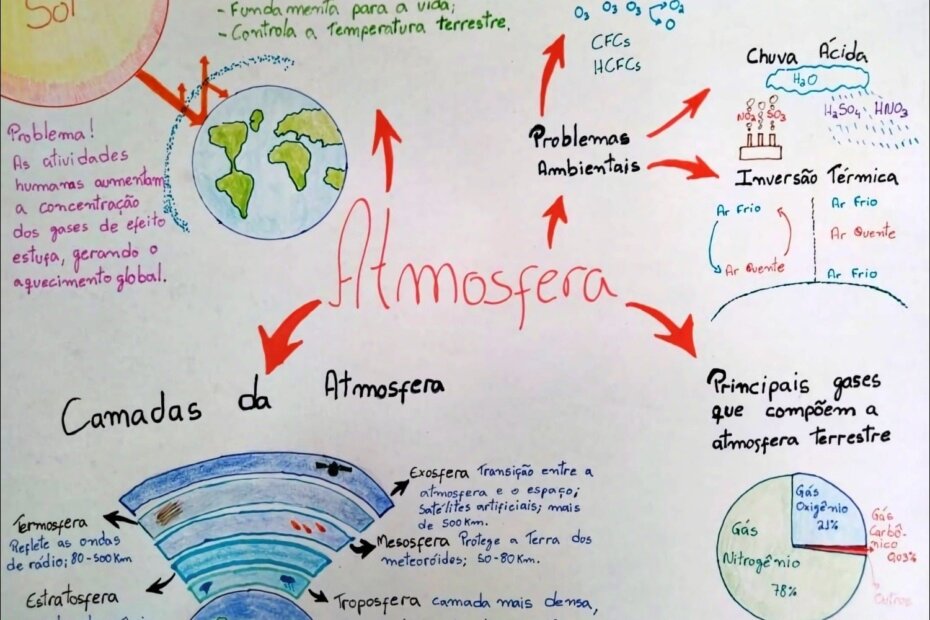 Sol
- Fundamenta para a vida;
- Controla a Temperatura terrestre.
Problema!
As atividades
humanas aumentam
a concentração
dos gases de efeito
estufa, gerando o
aquecimento global.
O3 O3 O3 O2
O
CFCs
HCFCs
Problemas
Ambientais
Chuva Ácida
H2O
NO2 SO3
H2SO4 HNO3
Inversão Térmica
Ar Frio
Ar Quente
Ar Frio
Ar Quente
Ar Frio
Atmosfera
Camadas da Atmosfera
Exosfera Transição entre a
atmosfera e o espaço;
Satélites artificiais; mais
de 500Km.
Termosfera
Reflete as ondas
de rádio; 80-500Km
Mesosfera Protege a Terra dos
meteoróides; 50-80Km.
Estratosfera
Troposfera camada mais densa,
Principais gases
que compõem a
atmosfera terrestre
Gás
Oxigênio
21%
Gás
Nitrogênio
78%
Gás
Carbô-
nico
0,03%
Outros